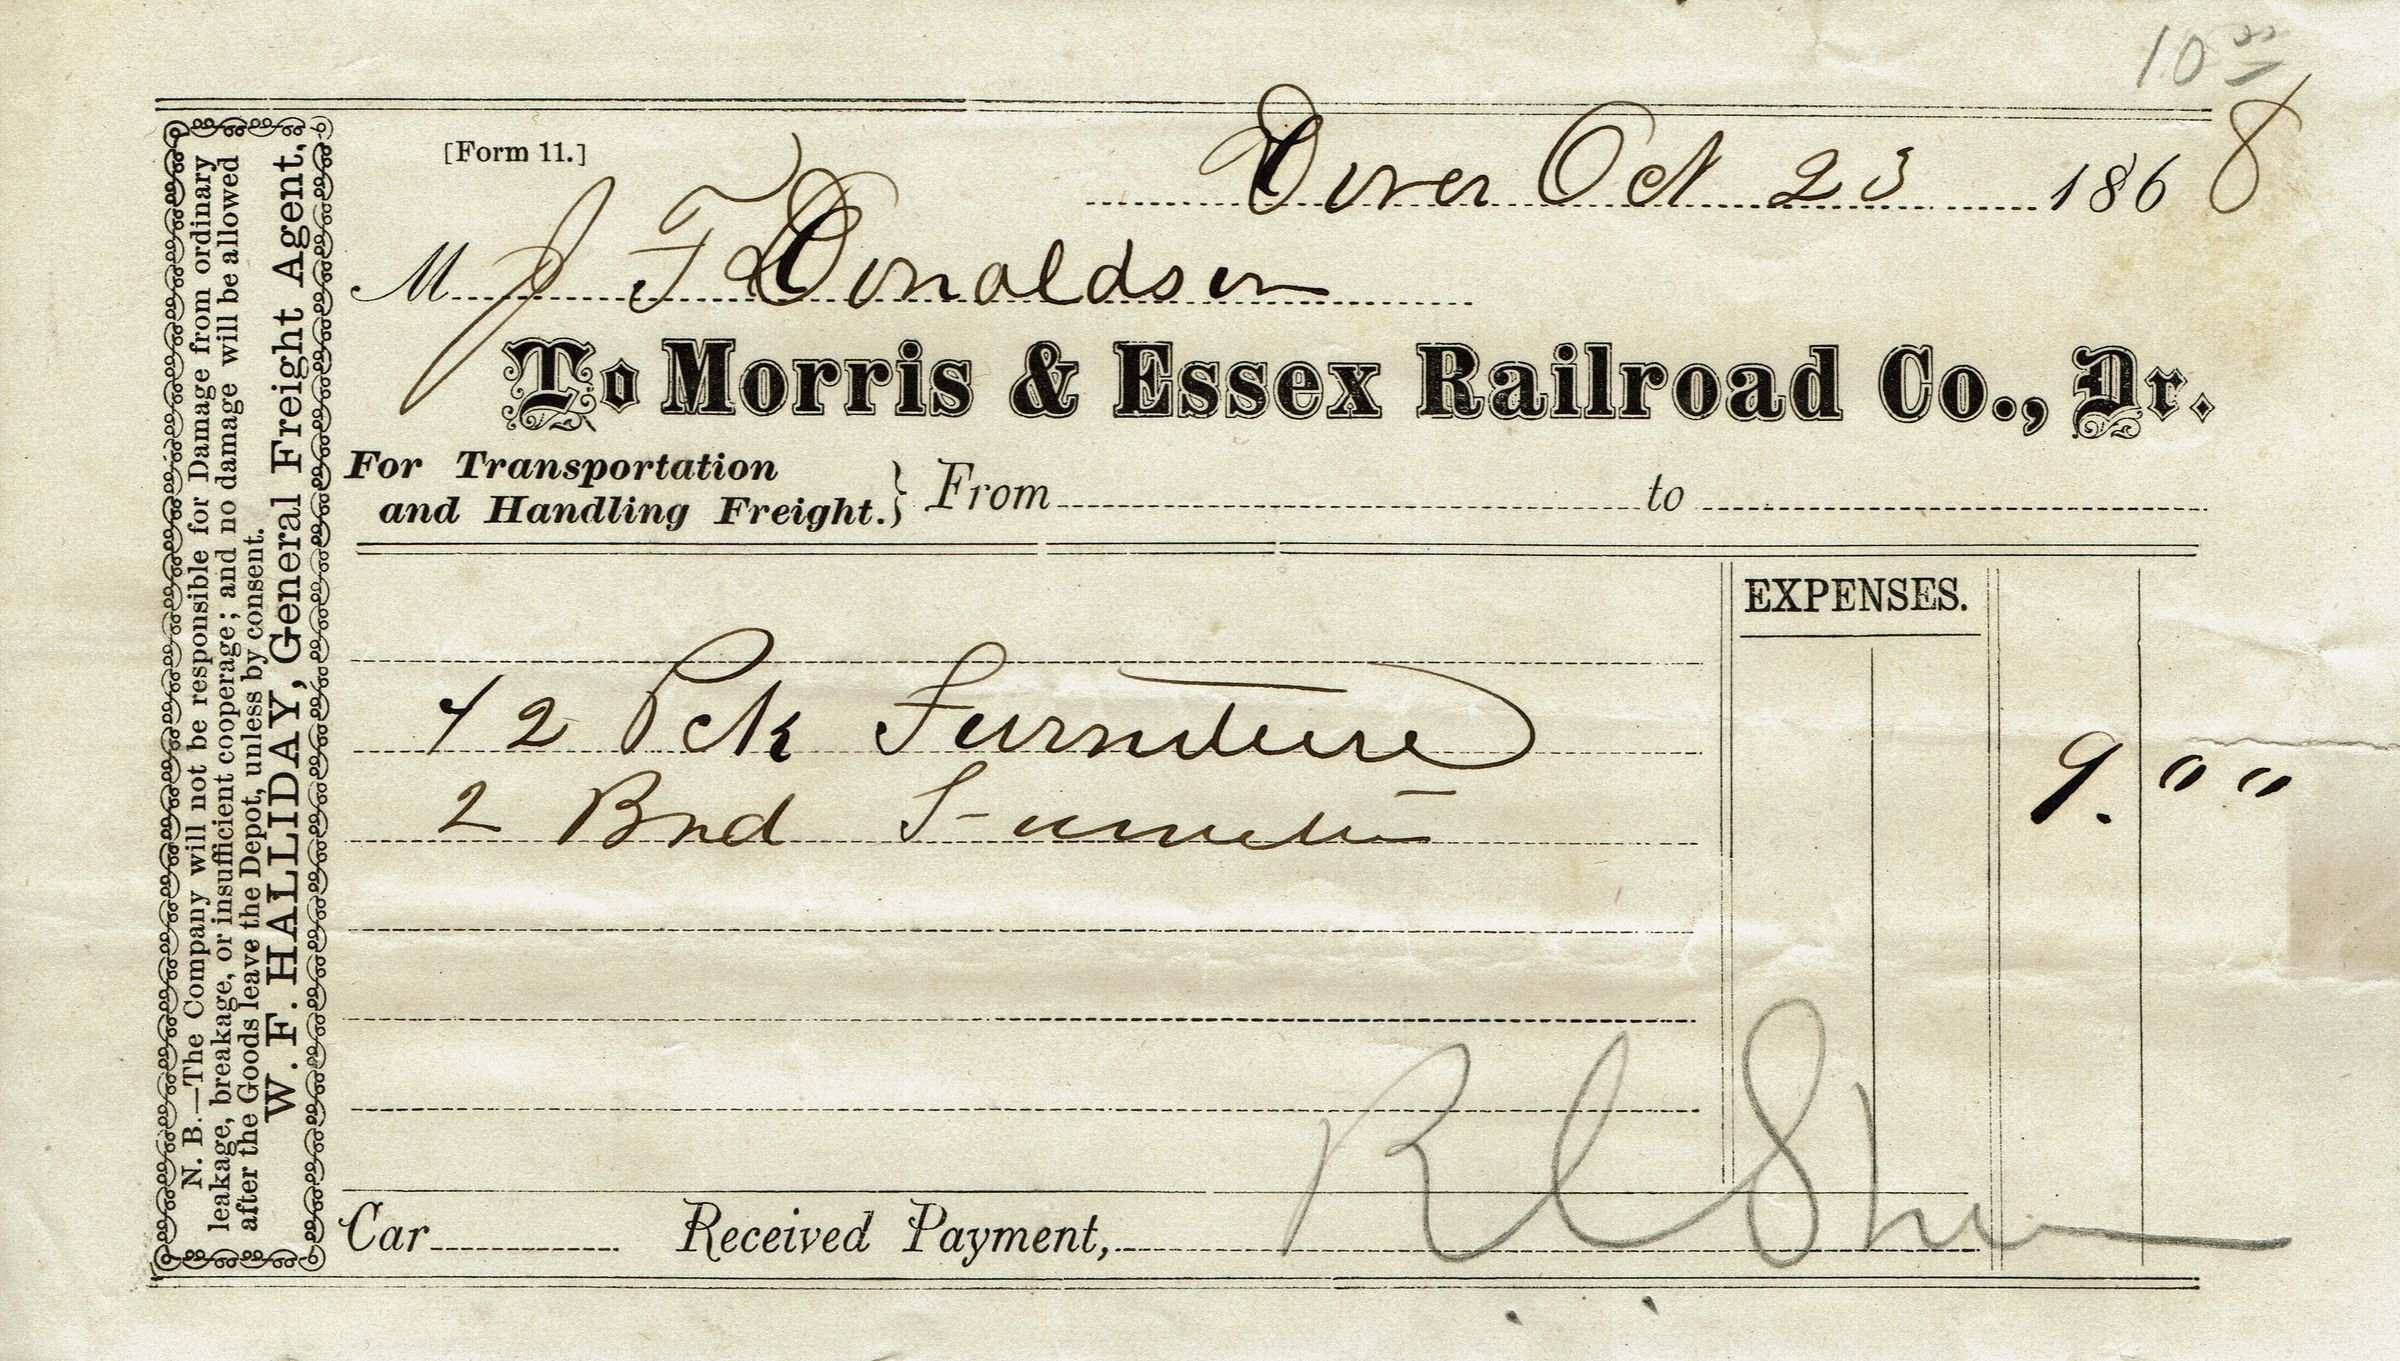 10 00
[Form 11.]
Dover Oct 23 1868
M J F Donaldson
To Morris & Essex Railroad Co., Dr.
For Transportation
and Handling Freight. } From to
EXPENSES.
42 Pck Furniture
2 Bnd Furniture
9. 00
Car Received Payment,
N. B.—The Company will not be responsible for Damage from ordinary
leakage, breakage, or insufficient cooperage; and no damage will be allowed
after the Goods leave the Depot, unless by consent.
W. F. HALLIDAY, General Freight Agent.